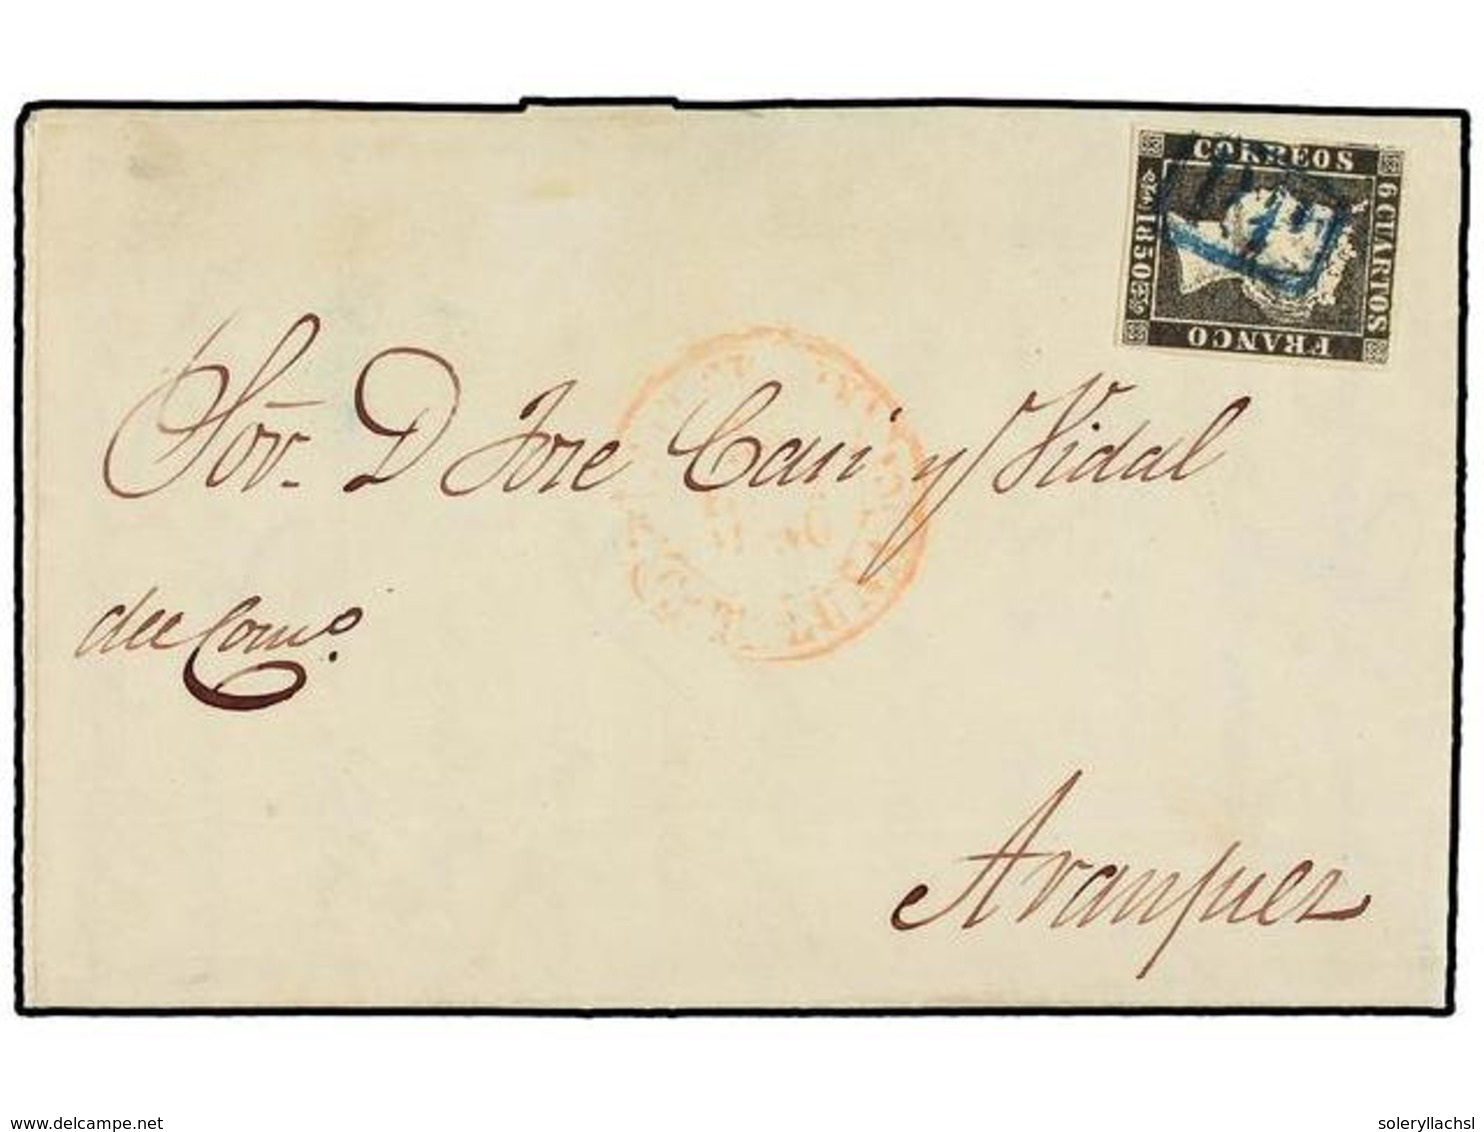 CORREOS
6 CUARTOS
1850
FRANCO
Sor. D Jose Cari y Vidal
del Como.
Aranjuez
delcampe.net
soleryllachsl